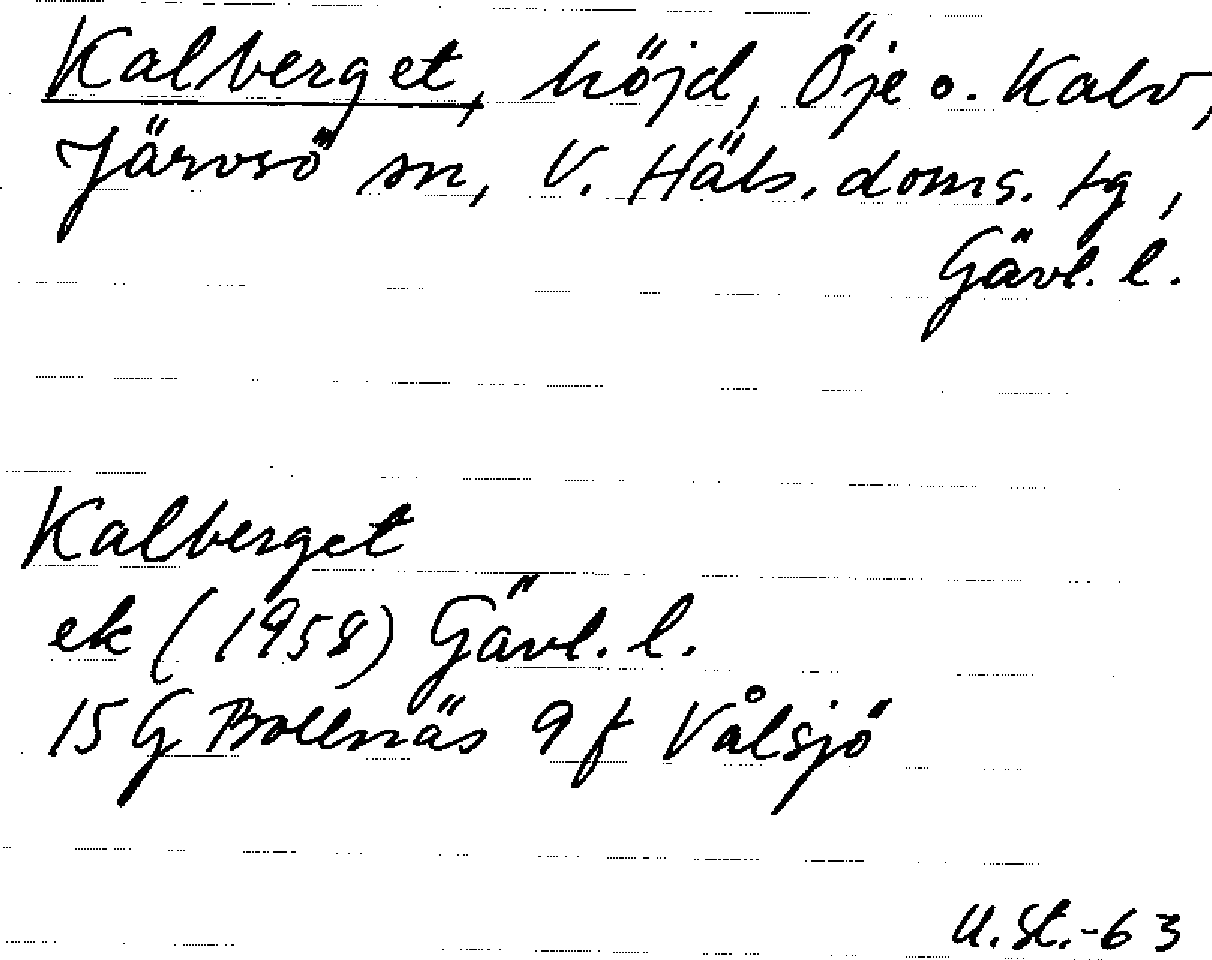 Kalberget, höjd, Öje o. Kalv,
Järvsö sn, V. Häls. doms. tg,
Gävl. l.
Kalberget
ek (1958) Gävl. l.
15 G Bollnäs 9 f Vålsjö
U. St.-63